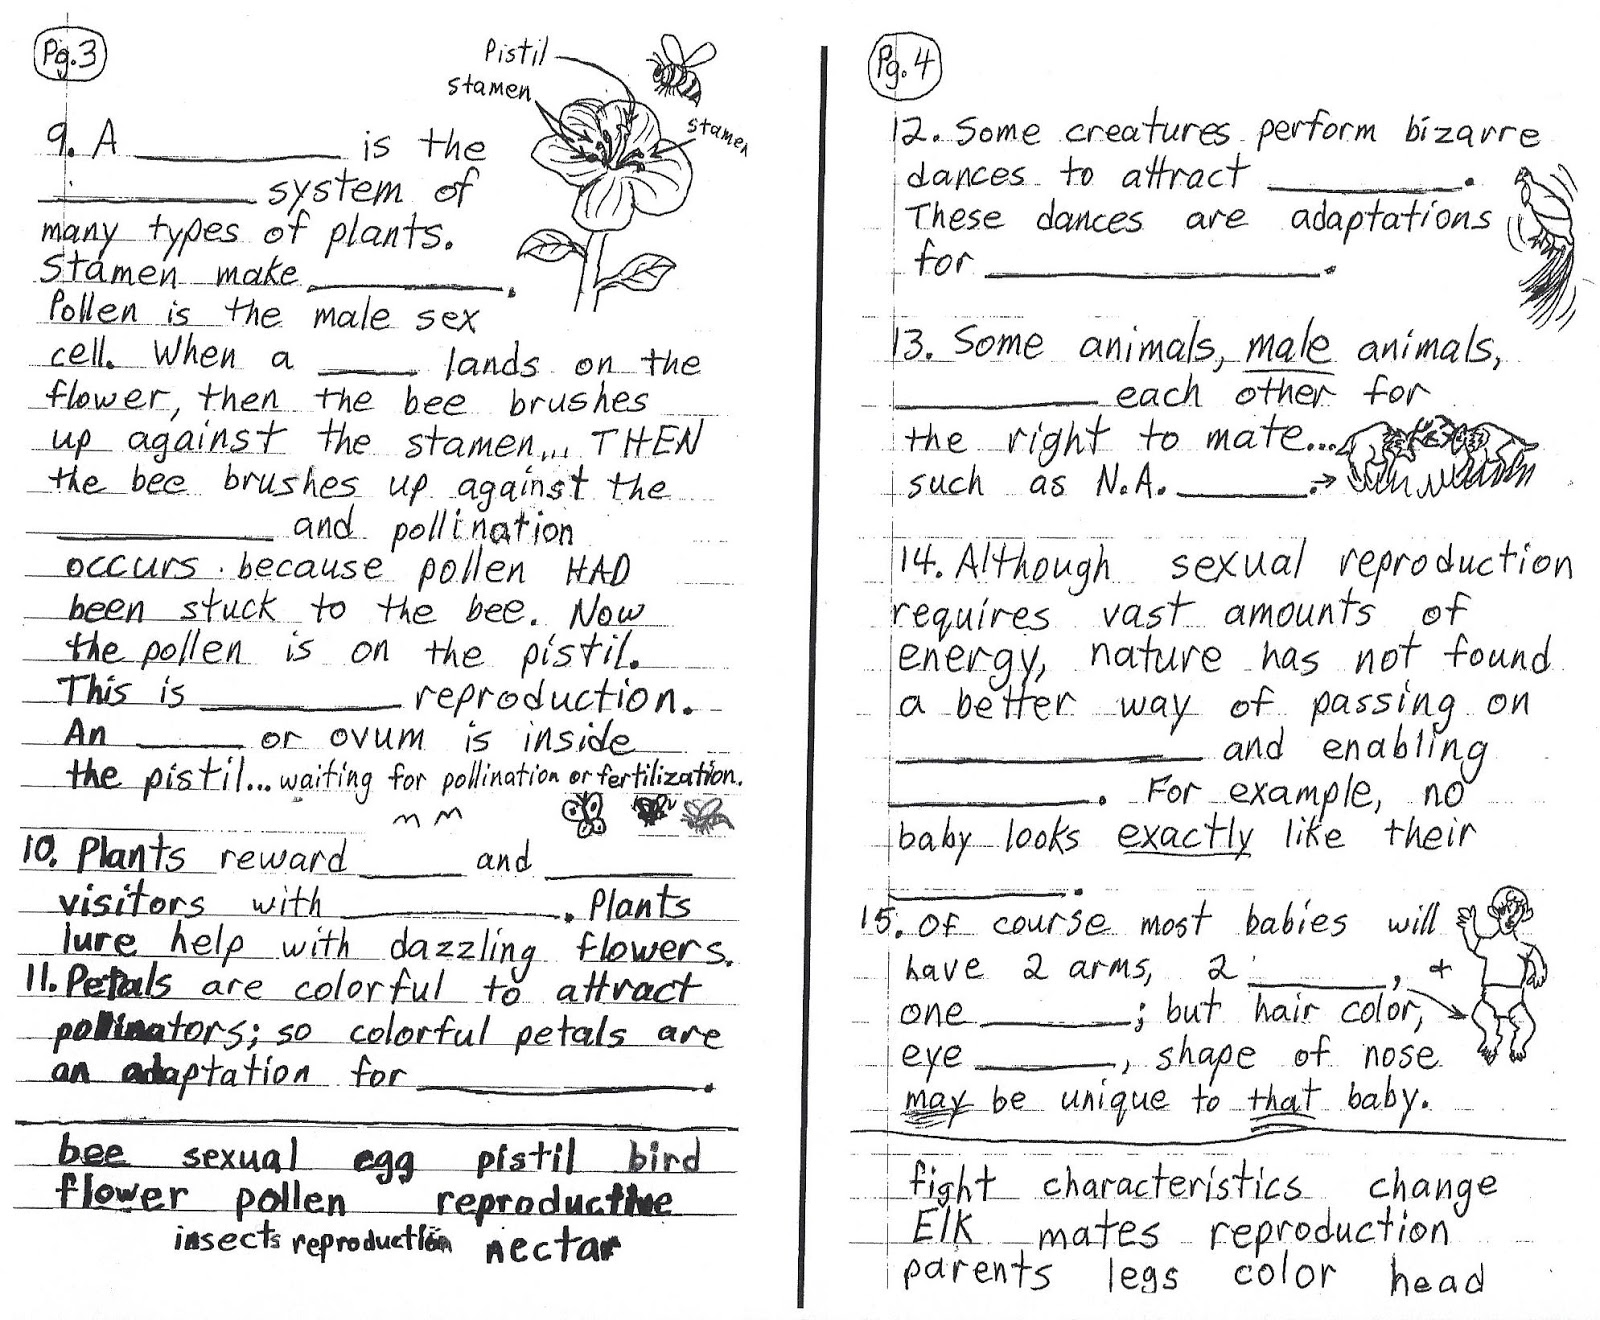 Pg.3
Pistil
stamen
stamen
9. A __________ is the
__________ system of
many types of plants.
Stamen make __________.
Pollen is the male sex
cell. When a _____ lands on the
flower, then the bee brushes
up against the stamen... THEN
the bee brushes up against the
__________ and pollination
occurs. because pollen HAD
been stuck to the bee. Now
the pollen is on the pistil.
This is __________ reproduction.
An _____ or ovum is inside
the pistil... waiting for pollination or fertilization.
10. Plants reward _____ and _______
visitors with __________. Plants
lure help with dazzling flowers.
11. Petals are colorful to attract
pollinators; so colorful petals are
an adaptation for ______________.
bee sexual egg pistil bird
flower pollen reproductive
insects reproduction nectar
Pg. 4
12. Some creatures perform bizarre
dances to attract __________.
These dances are adaptations
for ________________.
13. Some animals, male animals,
__________ each other for
the right to mate...
such as N.A. _______.
14. Although sexual reproduction
requires vast amounts of
energy, nature has not found
a better way of passing on
_______________ and enabling
__________. For example, no
baby looks exactly like their
_________.
15. Of course most babies will
have 2 arms, 2 _______, +
one _______; but hair color,
eye _______, shape of nose
may be unique to that baby.
fight characteristics change
Elk mates reproduction
parents legs color head